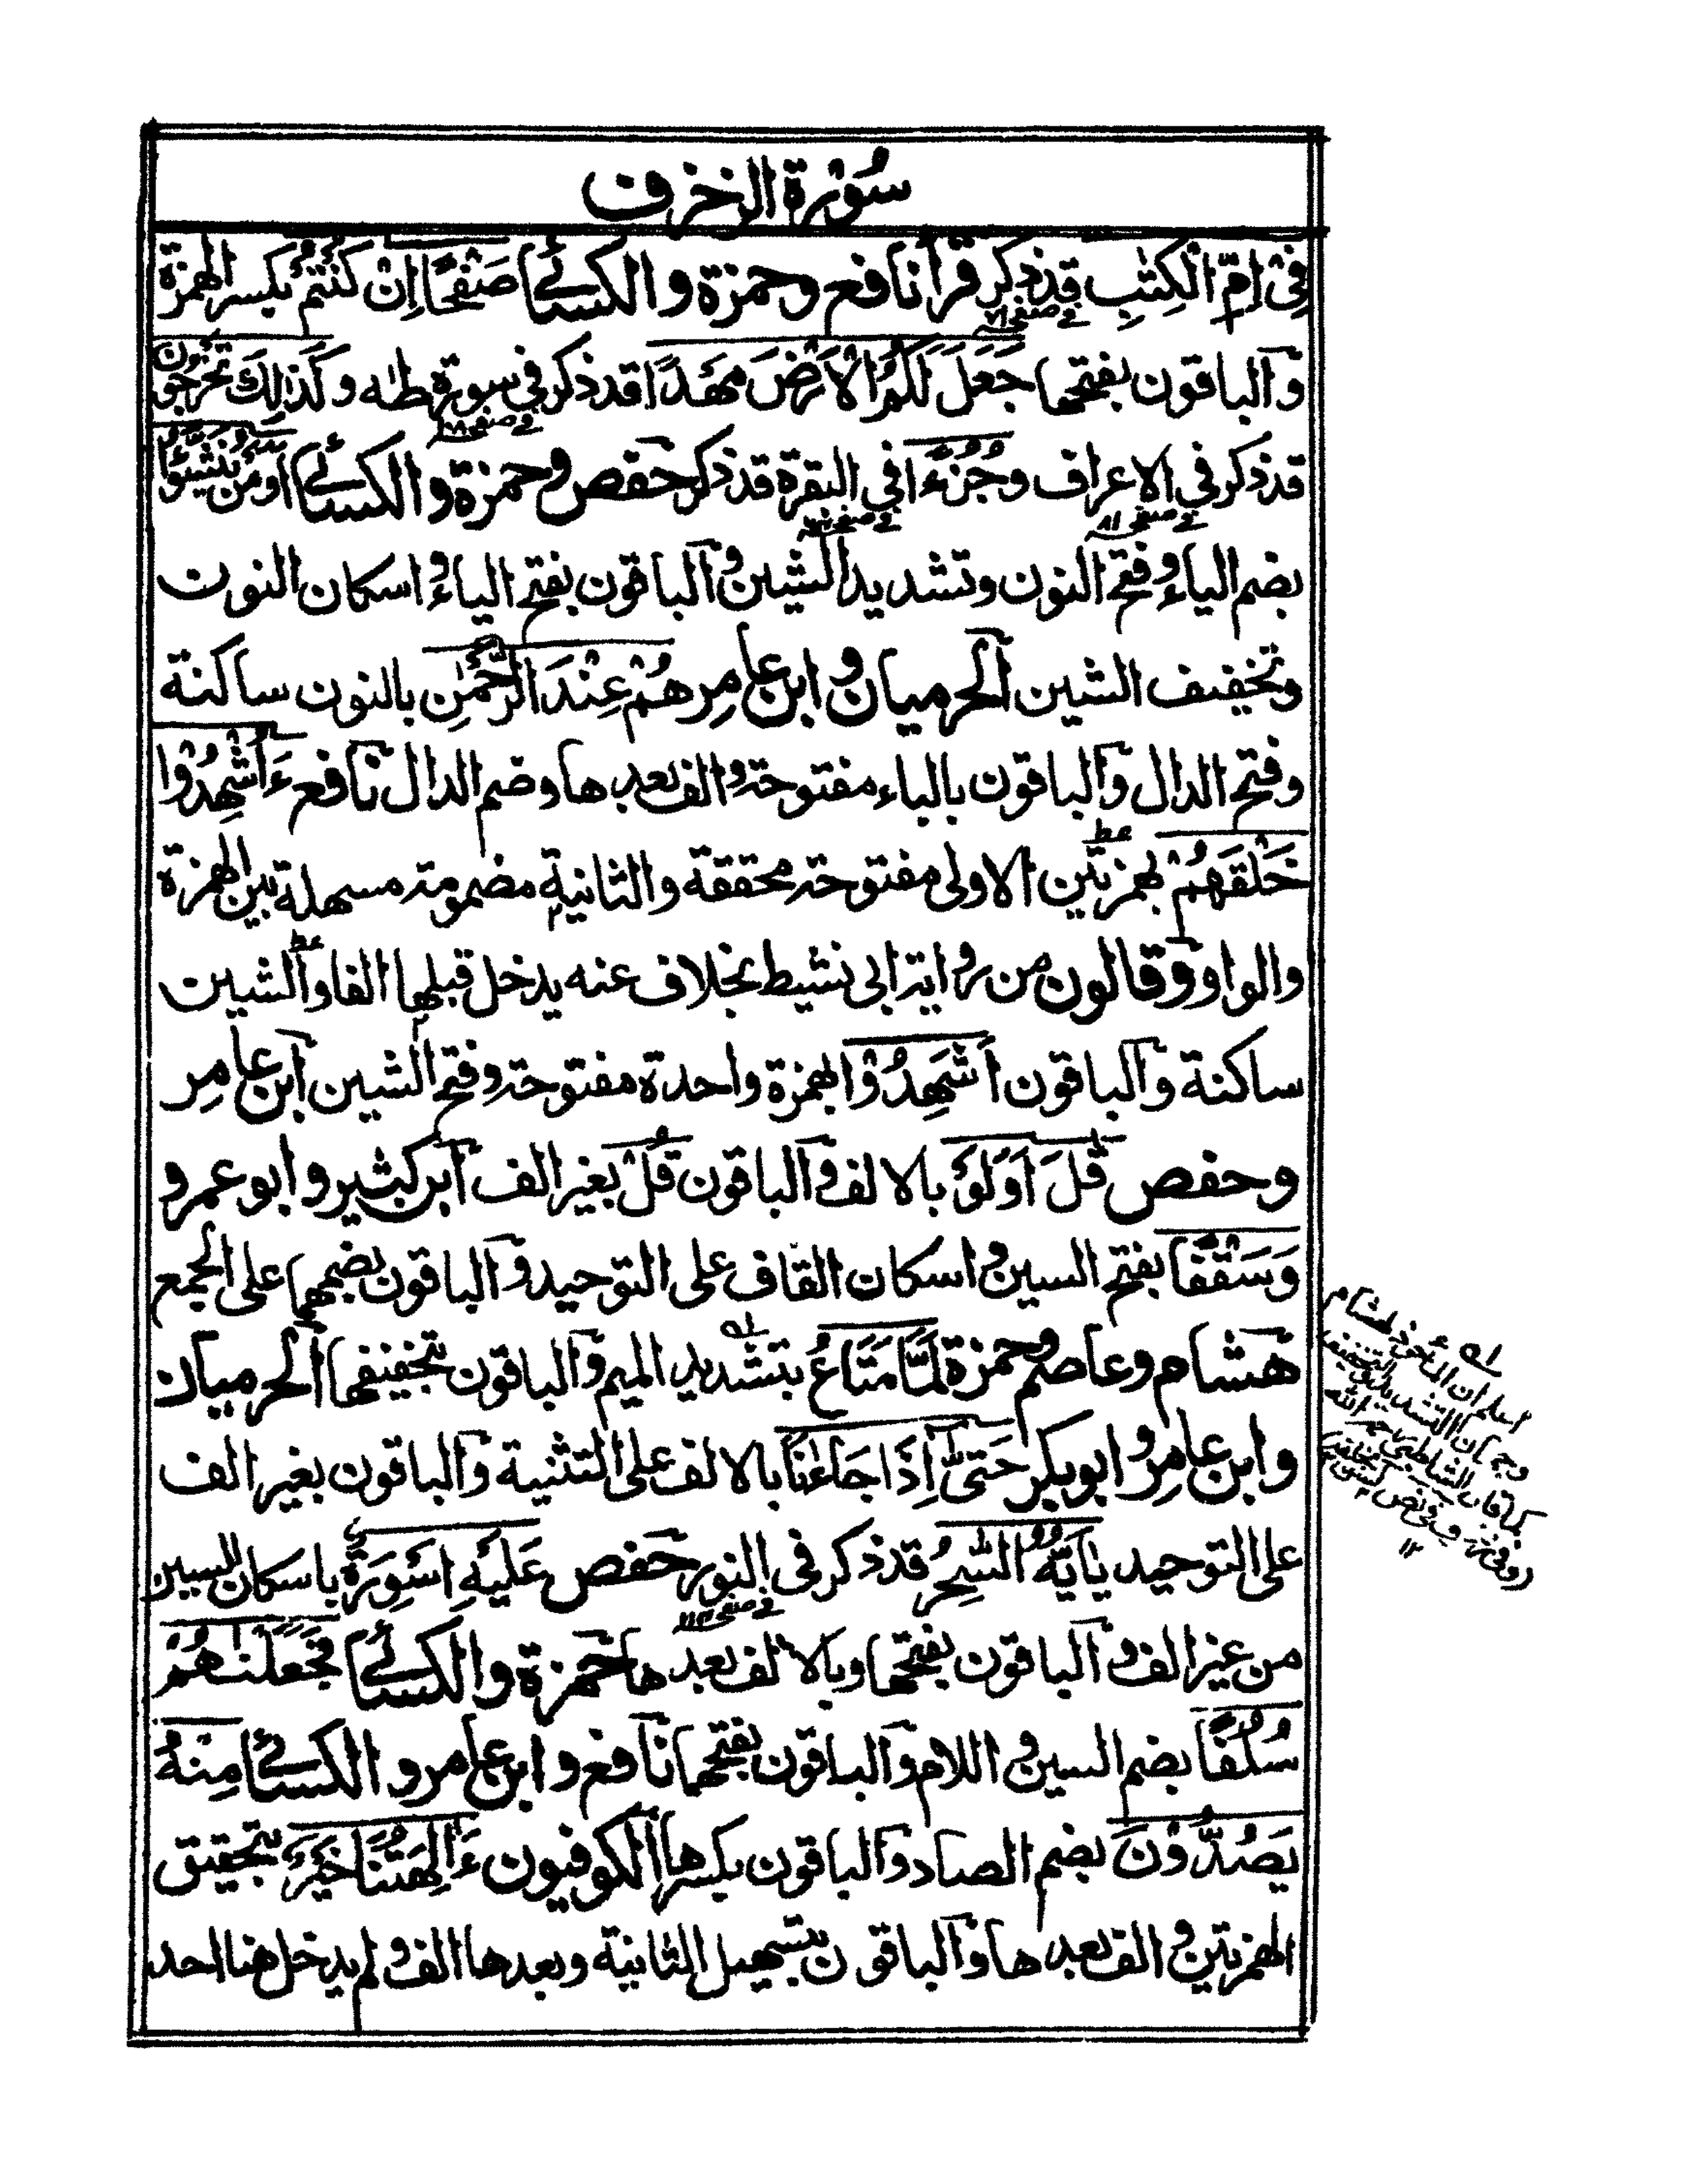 سُوْرَة الزخرف
فِیْ اُمِّ الْكِتٰبِ قد ذكر قرأ نافع وحمزة والكسائے صَفْحًا اِنْ كُنْتُمْ بكسر الهمزة
في صفحه
والباقون بفتحها جَعَلَ لَكُمُ الْاَرْضَ مَهْدًا قد ذكر فی سورة طٰه وكَذٰلِكَ تُخْرَجُوْنَ
في صفحه
قد ذكر فی الاعراف وجُزْءًا فی البقرة قد ذكر حفص وحمزة والكسائے اَوَمَنْ يُنَشَّؤُا
في صفحه ٨١ في صفحه
بضم الياء وفتح النون وتشديد الشين والباقون بفتح الياء واسكان النون
وتخفيف الشين الحرميان وابن عامر هُمْ عِنْدَ الرَّحْمٰنِ بالنون ساكنة
وفتح الدال والباقون بالباء مفتوحة والف بعدها وضم الدال نافع ءَاُشْهِدُوْا
خَلْقَهُمْ بهمزتين الاولى مفتوحة محققة والثانية مضمومة مسهلة بين الهمزة
والواو وقالون من رواية ابی نشيط بخلاف عنه يدخل قبلها الفا والشين
ساكنة والباقون اَشَهِدُوْا بهمزة واحدة مفتوحة وفتح الشين ابن عامر
وحفص قٰلَ اَوَلَوْ بالالف والباقون قُلْ بغير الف ابن كثير وابو عمرو
وَسَقْفًا بفتح السين واسكان القاف على التوحيد والباقون بضمهما على الجمع
هشام وعاصم وحمزة لَمَّا مَتَاعُ بتشديد الميم والباقون بتخفيفها الحرميان
وابن عامر وابو بكر حَتّٰى اِذَا جَاءٰنَا بالالف على التثنية والباقون بغير الف
على التوحيد يٰاَيُّهَ السّٰحِرُ قد ذكر فی النور حفص عَلَيْهِ اَسْوِرَةٌ باسكان السين
في صفحه
من غير الف والباقون بفتحها وبالالف بعدها حمزة والكسائے فَجَعَلْنٰهُمْ
سُلُفًا بضم السين واللام والباقون بفتحهما نافع وابن عامر والكسائے مِنْهُ
يَصُدُّوْنَ بضم الصاد والباقون بكسرها الكوفيون ءَاٰلِهَتُنَا خَيْرٌ بتحقيق
الهمزتين والف بعدها والباقون بتسهيل الثانية وبعدها الف ولم يدخل هنا احد
اعلم ان الماخوذ لهشام
وجهان التشديد والتخفيف
كما قال الشاطبی رحمه الله
١٢